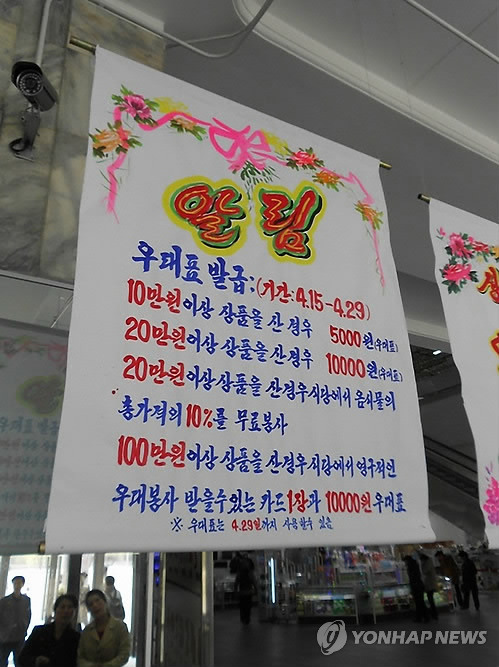 알림
우대표 발급:(기간:4.15-4.29)
10만원이상 상품을 산 경우 5000원(우대표)
20만원이상 상품을 산경우 10000원(우대표)
20만원이상 상품을 산경우 식당에서 음식물의
총가격의 10%를 무료봉사
100만원이상 상품을 산경우 식당에서 영구적인
우대봉사 받을수있는 카드1장과 10000원 우대표
※ 우대표는 4.29일까지 사용할수 있음
YONHAP NEWS